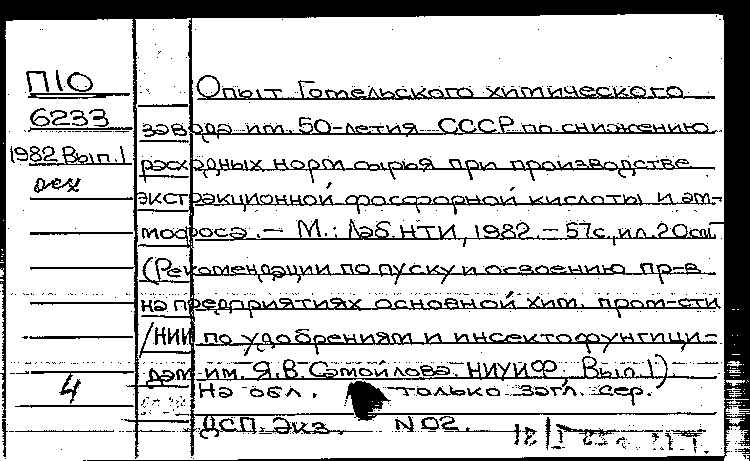 П10
6233
1982 Вып.1
Опыт Гомельского химического
завода им. 50-летия СССР по снижению
расходных норм сырья при производстве
экстракционной фосфорной кислоты и ам-
мофоса. – М.: Лаб.НТИ, 1982. – 57с, ил. 20см
(Рекомендации по пуску и освоению пр-в
на предприятиях основной хим. пром-сти
/НИИ по удобрениям и инсектофунгици-
дам им. Я.В. Самойлова. НИУИФ; Вып.1).
4
На обл. только загл. сер.
ДСП. Экз. N02.